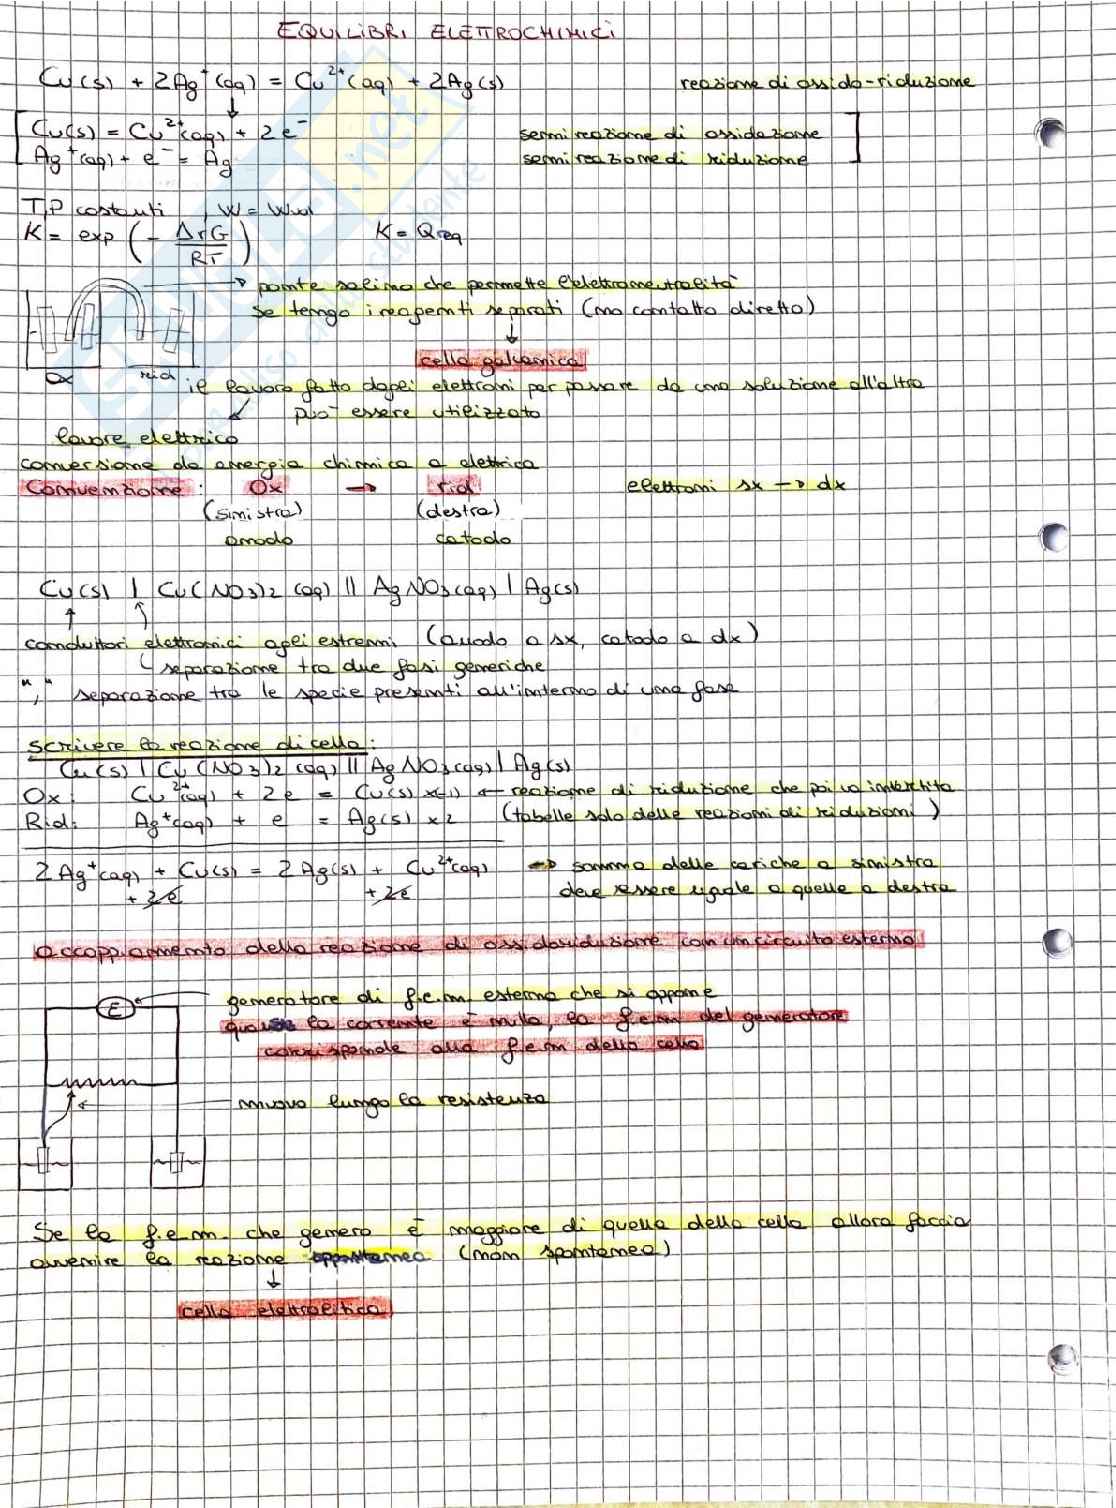 EQUILIBRI ELETTROCHIMICI
Cu(s) + 2Ag⁺(aq) = Cu²⁺(aq) + 2Ag(s) reazione di ossido-riduzione
↓
[ Cu(s) = Cu²⁺(aq) + 2e⁻ semireazione di ossidazione
Ag⁺(aq) + e⁻ = Ag semireazione di riduzione ]
T,P costanti , W = Wvol
K = exp (- ΔrG / RT) K = Qreq
→ ponte salino che permette l'elettroneutralità
se tengo i reagenti separati (no contatto diretto)
↓
cella galvanica
Ox rid
il lavoro fatto dagli elettroni per passare da una soluzione all'altra
può essere utilizzato
lavoro elettrico
conversione da energia chimica a elettrica
Convenzione: Ox → rid elettroni sx → dx
(sinistra) (destra)
anodo catodo
Cu(s) | Cu(NO3)2 (aq) || AgNO3(aq) | Ag(s)
conduttori elettronici agli estremi (anodo a sx, catodo a dx)
separazione tra due fasi generiche
"," separazione tra le specie presenti all'interno di una fase
scrivere la reazione di cella:
Cu(s) | Cu(NO3)2 (aq) || AgNO3(aq) | Ag(s)
Ox: Cu²⁺(aq) + 2e = Cu(s) x(-1) ← reazione di riduzione che poi va invertita
Rid: Ag⁺(aq) + e = Ag(s) x2 (tabelle solo delle reazioni di riduzioni)
2Ag⁺(aq) + Cu(s) = 2Ag(s) + Cu²⁺(aq) → somma delle cariche a sinistra
+ 2e + 2e deve essere uguale a quelle a destra
accoppiamento della reazione di ossidoriduzione con un circuito esterno
E
generatore di f.e.m. esterna che si oppone
quando la corrente è nulla, la f.e.m del generatore
corrisponde alla f.e.m della cella
muovo lungo la resistenza
Se la f.e.m. che genero è maggiore di quella della cella allora faccio
avvenire la reazione (non spontanea)
↓
cella elettrolitica
SKUOLA.net